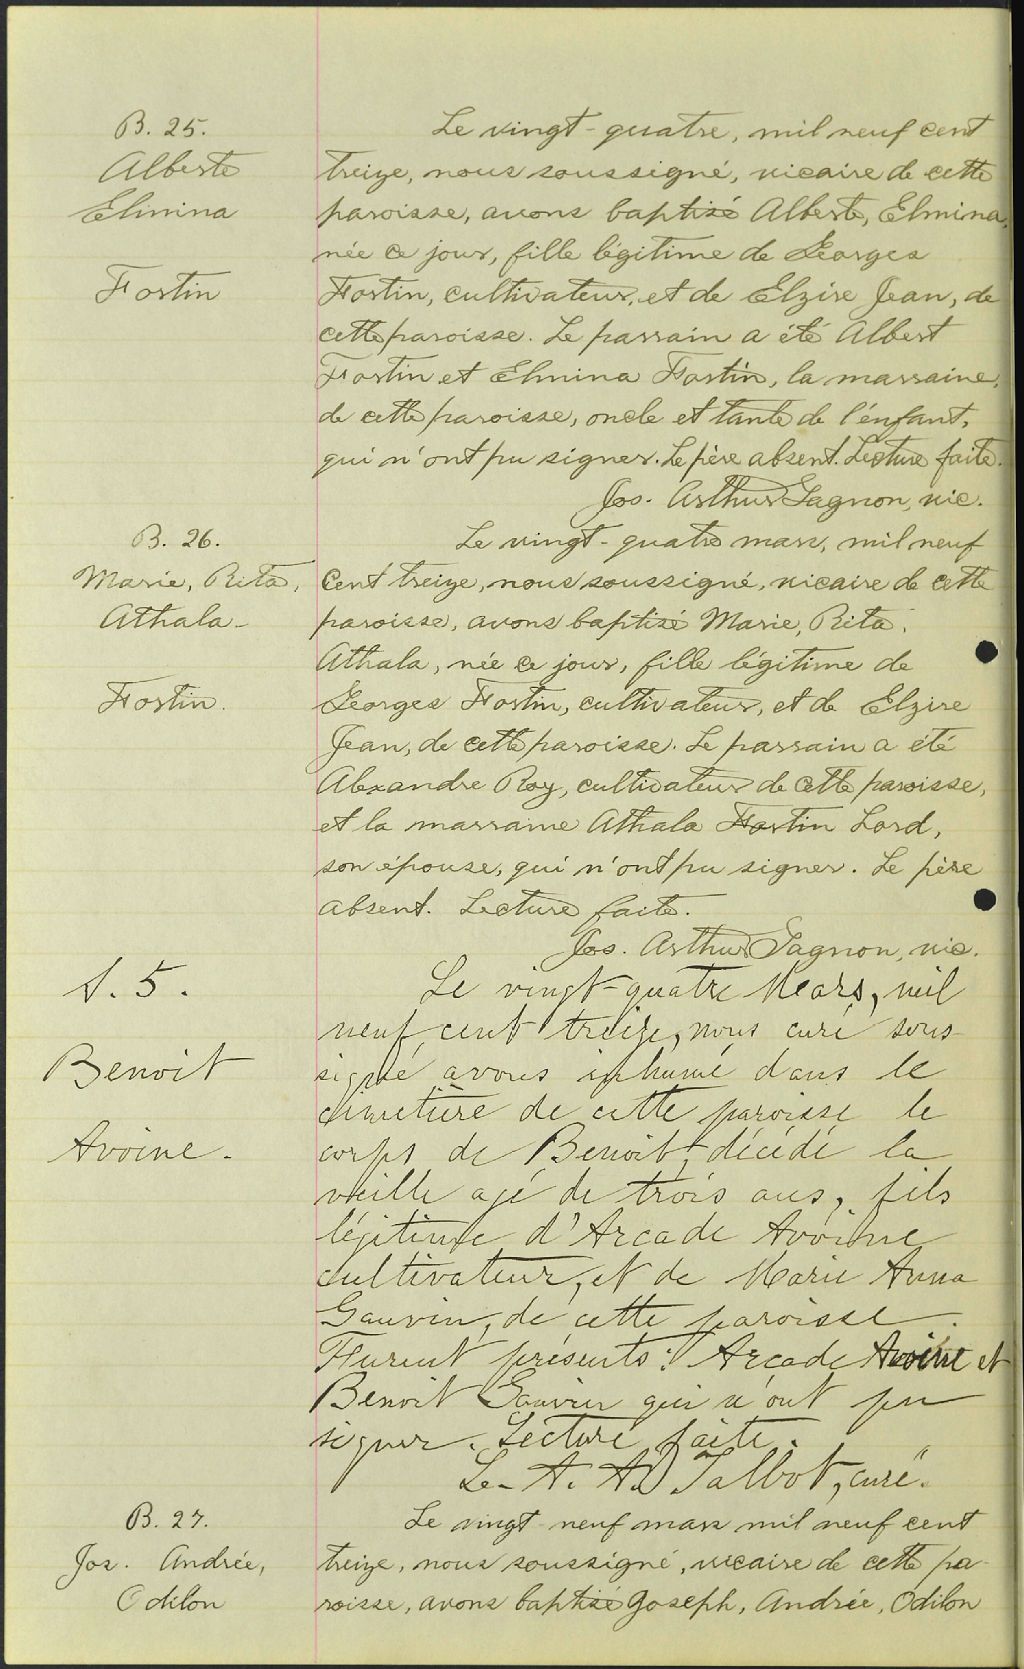 B. 25.
Alberte
Elmina
Fortin
Le vingt-quatre, mil neuf cent
treize, nous soussigné, vicaire de cette
paroisse, avons baptisé Alberte, Elmina,
née ce jour, fille légitime de Georges
Fortin, cultivateur, et de Elzire Jean, de
cette paroisse. Le parrain a été Albert
Fortin et Elmina Fortin, la marraine,
de cette paroisse, oncle et tante de l'enfant,
qui n'ont pu signer. Le père absent. Lecture faite.
Jos. Arthur Gagnon, vic.
B. 26.
Marie, Rita,
Athala-
Fortin.
Le vingt-quatre mars, mil neuf
cent treize, nous soussigné, vicaire de cette
paroisse, avons baptisé Marie, Rita,
Athala, née ce jour, fille légitime de
Georges Fortin, cultivateur, et de Elzire
Jean, de cette paroisse. Le parrain a été
Alexandre Roy, cultivateur de cette paroisse,
et la marraine Athala Fortin Lord,
son épouse, qui n'ont pu signer. Le père
absent. Lecture faite.
Jos. Arthur Gagnon, vic.
S. 5.
Benoit
Avoine.
Le vingt-quatre Mars, mil
neuf cent treize, nous curé sous-
signé avons inhumé dans le
cimetière de cette paroisse le
corps de Benoit, décédé la
veille agé de trois ans, fils
légitime d'Arcade Avoine
cultivateur, et de Marie Anna
Gauvin, de cette paroisse.
Furent présents: Arcade Avoine et
Benoit Gauvin qui n'ont pu
signer. Lecture faite.
L.-A. A. Talbot, curé.
B. 27.
Jos. Andrée,
Odilon
Le vingt-neuf mars mil neuf cent
treize, nous soussigné, vicaire de cette pa-
roisse, avons baptisé Joseph, Andrée, Odilon